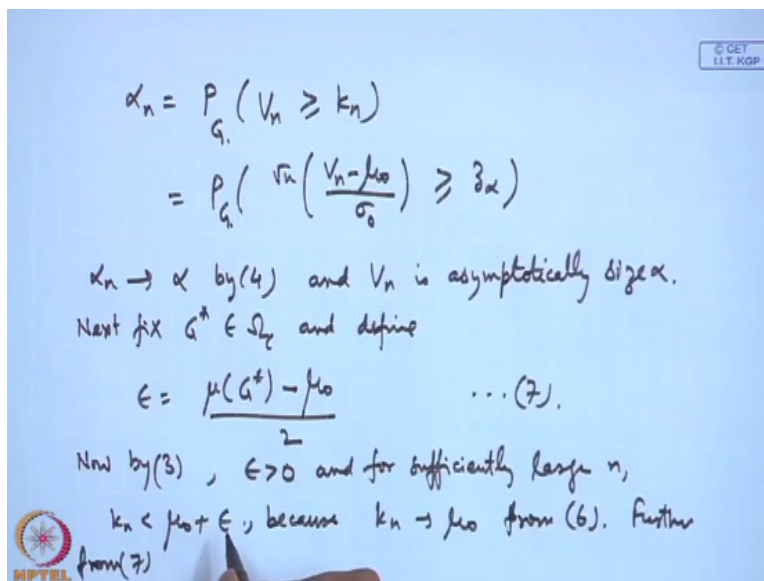 © CET
I.I.T. KGP
αₙ = P_G (Vₙ ≥ kₙ)
= P_G ( √n ( (Vₙ - μ₀) / σ₀ ) ≥ z_α )
αₙ → α by (4) and Vₙ is asymptotically size α.
Next fix G* ∈ Ω₁ and define
ϵ = (μ(G*) - μ₀) / 2 ... (7).
Now by (3), ϵ>0 and for sufficiently large n,
kₙ < μ₀ + ϵ, because kₙ → μ₀ from (6). Further
from (7)
NPTEL